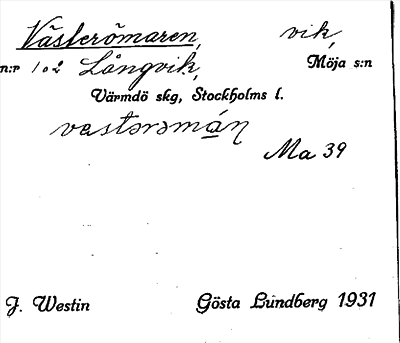 Västerömaren, vik,
n:r 102 Långvik, Möja s:n
Värmdö skg, Stockholms l.
vastərəmán
Ma 39
J. Westin Gösta Lundberg 1931